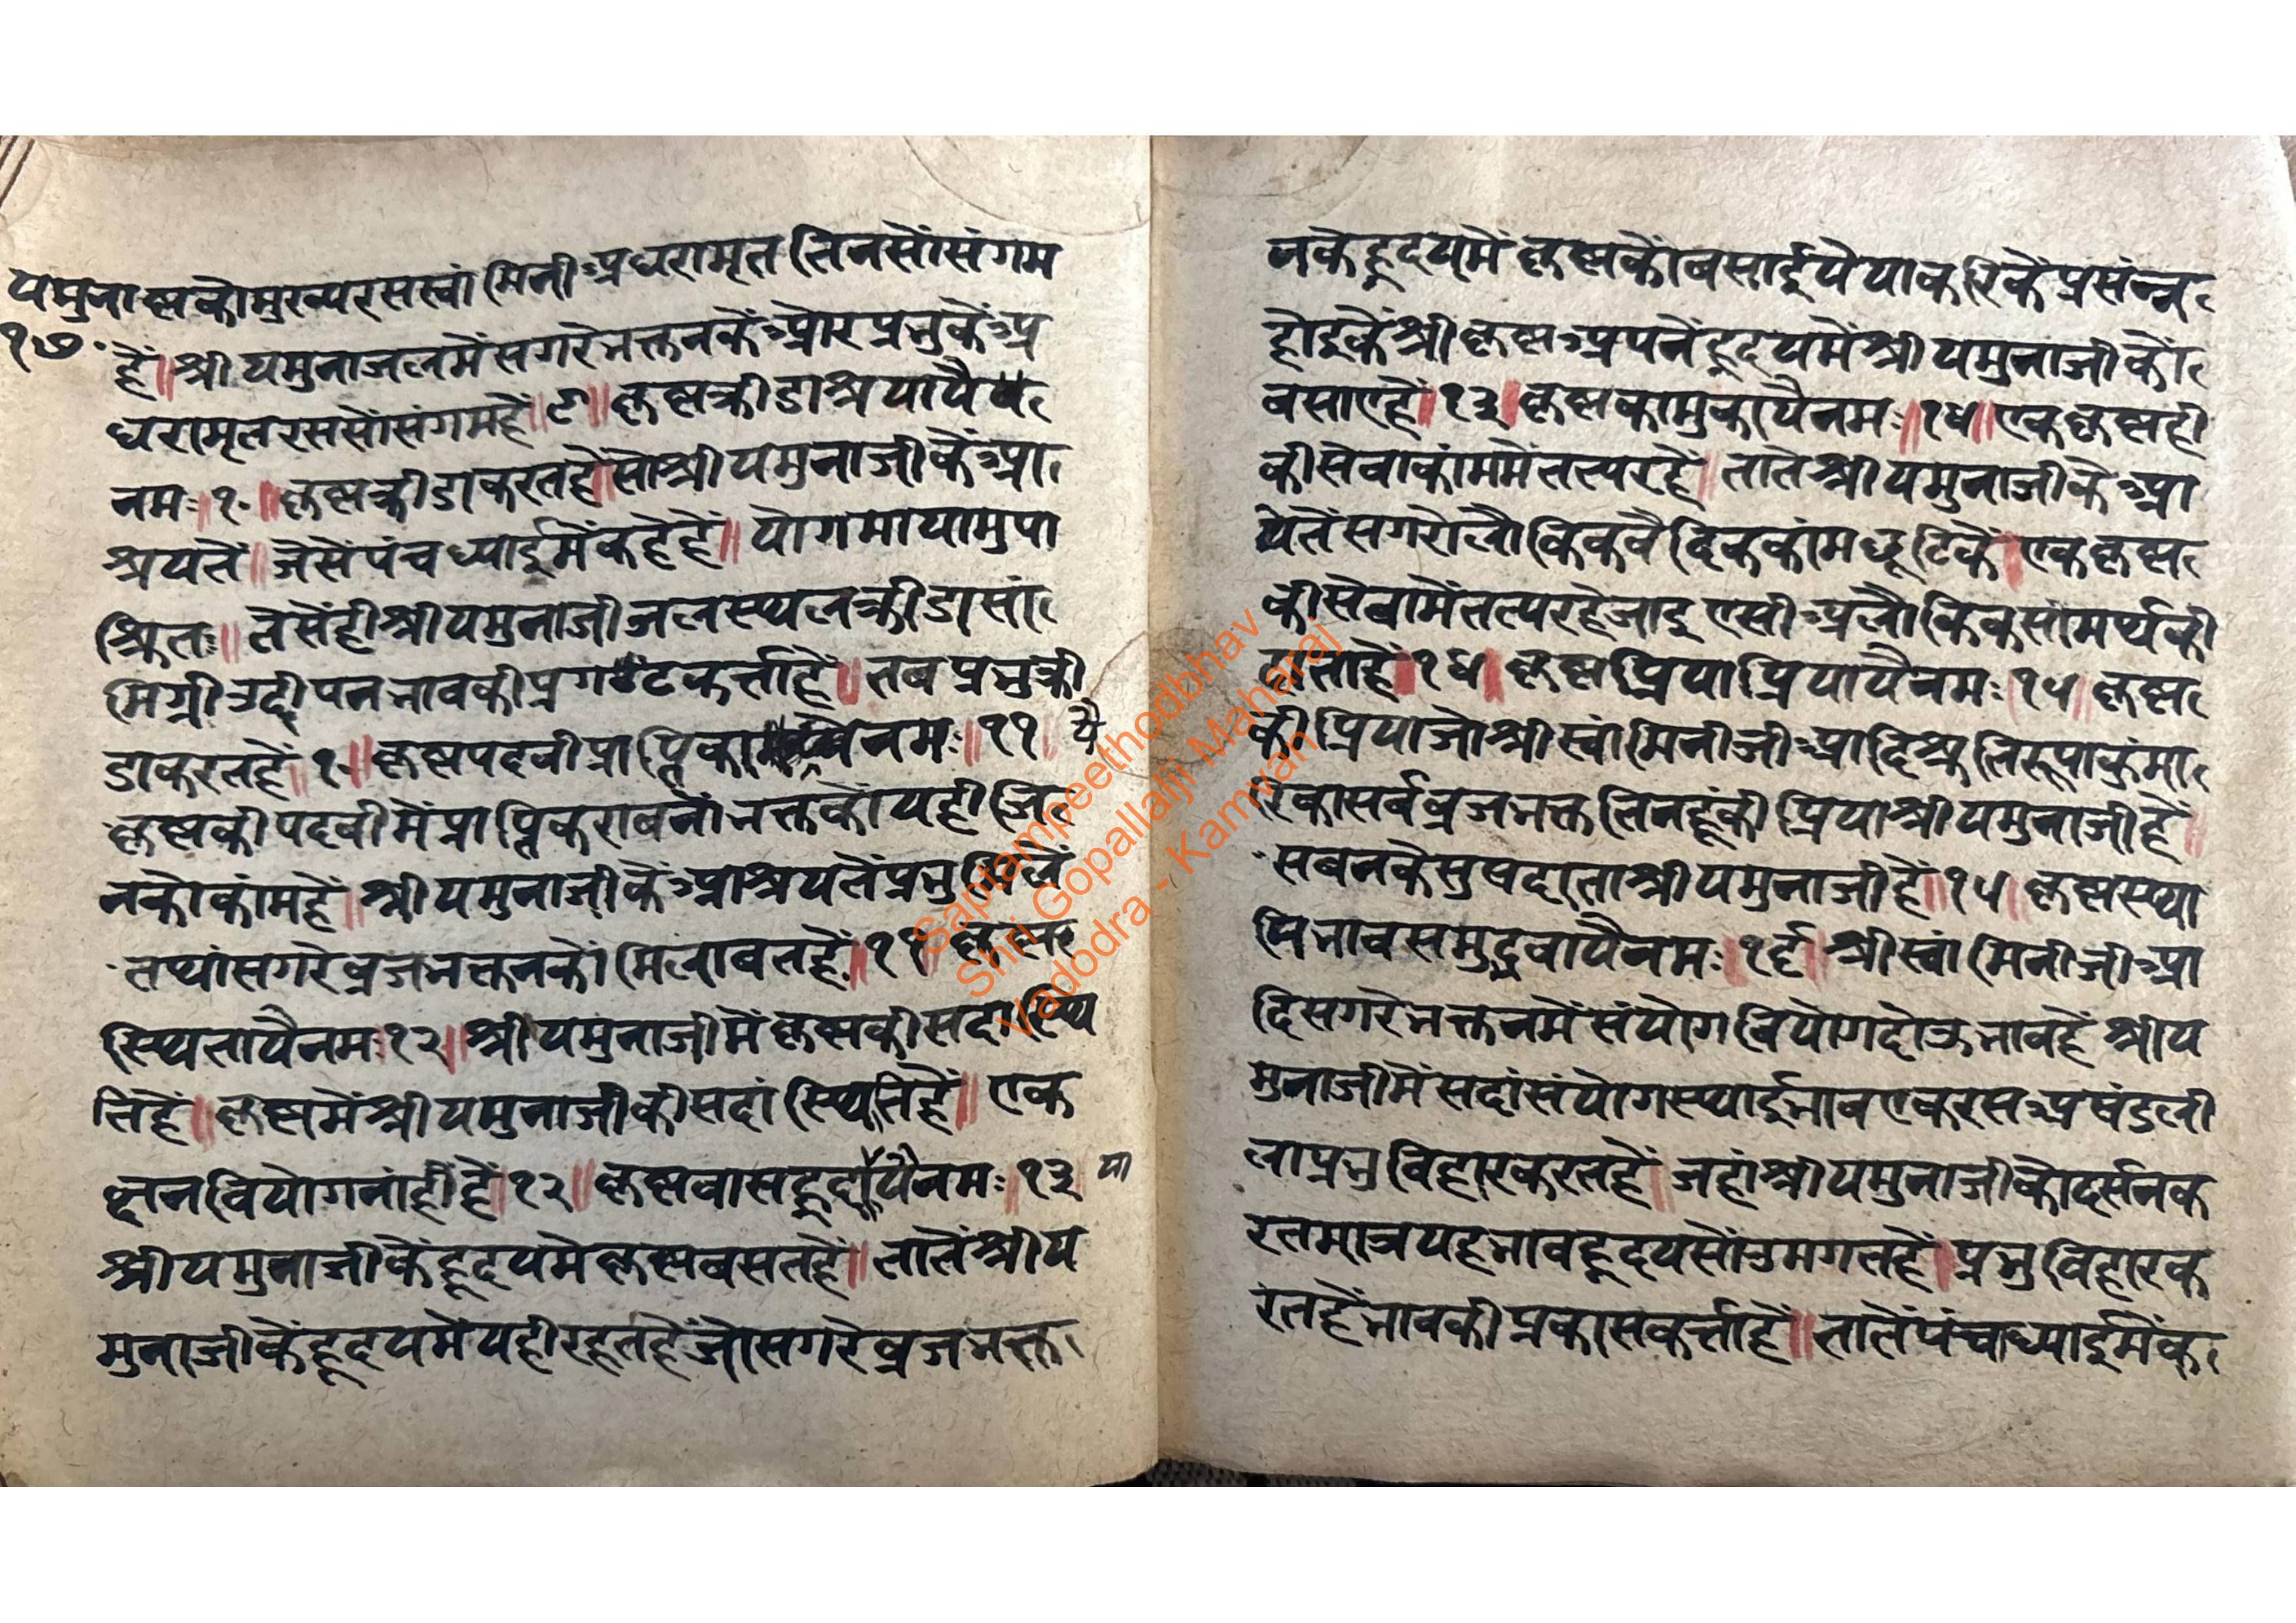 यमुना ष्णकौमुख्यरसस्वांमिनीअधरामृत तिनसौंसंगम
१७॰
हैं॥श्रीयमुनाजलमेंसगरेभक्तनकेंऔरप्रभुकेंअ
धरामृतरससौंसंगमहैं॥९॥कृष्णक्रीडाश्रयायै
नमः॥१॰॥कृष्णक्रीडाकरतहैं॥सोश्रीयमुनाजीकेंआ
श्रयतें॥जैसेंपंचध्याईमेंकहेहैं॥योगमायामुपा
श्रितः॥तैसेंहीश्रीयमुनाजीजलस्थलक्रीडासां
मिग्रीउद्दीपनभावकीप्रगटकर्त्ताहैं॥तबप्रभुक्री
डाकरतहैं॥१॰॥कृष्णपदवीप्राप्तिका नमः॥११॥ यै
कृष्णकीपदवीमेंप्राप्तिकरावनोंभक्तकोंयहीजि
नकोकांमहैं॥श्रीयमुनाजीकेंआश्रयतेंप्रभुमिलें
तथांसगरेव्रजभक्तनकों मिलावतहैं॥११॥कृष्ण
स्थितायैनमः१२॥श्रीयमुनाजीमेंकृष्णकीसदांस्थि
तिहैं॥कृष्णमेंश्रीयमुनाजीकीसदांस्थितिहैं॥एक
छनवियोगनांहींहैं॥१२॥कृष्णवासहृदायैनमः॥१३ या
श्रीयमुनाजीकेंहृदयमेंकृष्णबसतहैं॥तातेंश्रीय
मुनाजीकेंहृदयमेंयहीरहतहैंजोसगरेव्रजभक्त
नकेहृदयमेंकृष्णकोंबसाईयेयाकरिकेंप्रसंन्न
होइकेंश्रीकृष्णअपनेंहृदयमेंश्रीयमुनाजीकों
बसाएहैं॥१३॥कृष्णकामुकायैनमः॥१४॥एककृष्णही
कीसेवाकांममेंतत्परहैं॥तातेश्रीयमुनाजीकेआ
श्रयतेंसगरोलौकिकवैदिककांमछूटिकें॥एककृष्ण
कीसेवामेंतत्परहेजाइएसीअलौकिकसांमर्थ्यकी
दाताहैं॥१४॥कृष्णप्रियाप्रियायैनमः॥१५॥कृष्ण
कीप्रियाजोश्रीस्वांमिनीजीआदिश्रुतिरूपाकुंमा
रिकासर्वव्रजभक्ततिनहूंकीप्रियाश्रीयमुनाजीहैं॥
सबनकेसुषदाताश्रीयमुनाजीहैं॥१५॥कृष्णस्था
यिभावसमुद्भवायैनमः॥१६॥श्रीस्वांमिनीजीआ
दिसगरेभक्तनमेंसंयोगवियोगदोऊभावहैंश्रीय
मुनाजीमेंसदांसंयोगस्थाईभावएकरसअषंडली
लाप्रभुविहारकरतहैं॥जहांश्रीयमुनाजीकोदर्सनक
रतमात्रयहभावहृदयसोंउमगतहैं॥प्रभुविहारक
रतहैंभावकीप्रकासकर्त्ताहैं॥तातेंपंचाध्याईमेंक